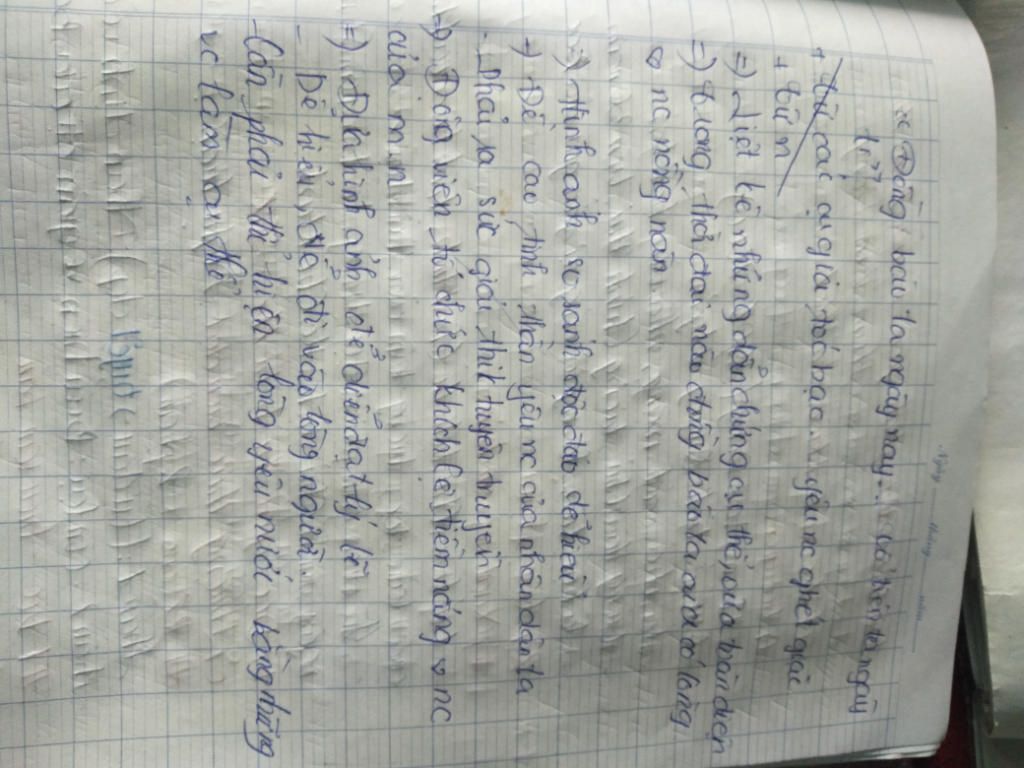 * Đồng bào ta ngày nay... có tiền ta ngày
trc
+ từ các cụ già tóc bạc... yêu nc ghét giặc
+ từ n
=) Liệt kê những dẫn chứng cụ thể, vừa toàn diện
=) trong thời đại nào đồng bào ta cũng có lòng
♡ nc nồng nàn
=) Hình ảnh so sánh độc đáo dễ hiểu
=) Đề cao tinh thần yêu nc của nhân dân ta
- Phải ra sức giải thích tuyên truyền
=) Động viên tổ chức khích lệ tiềm năng ♡ nc
của m.n
=) Đưa hình ảnh để diễn đạt lý lẽ
- Dễ hiểu, dễ đi vào lòng người.
- Cần phải thể hiện lòng yêu nước bằng những
vc làm cụ thể
Ngày tháng năm